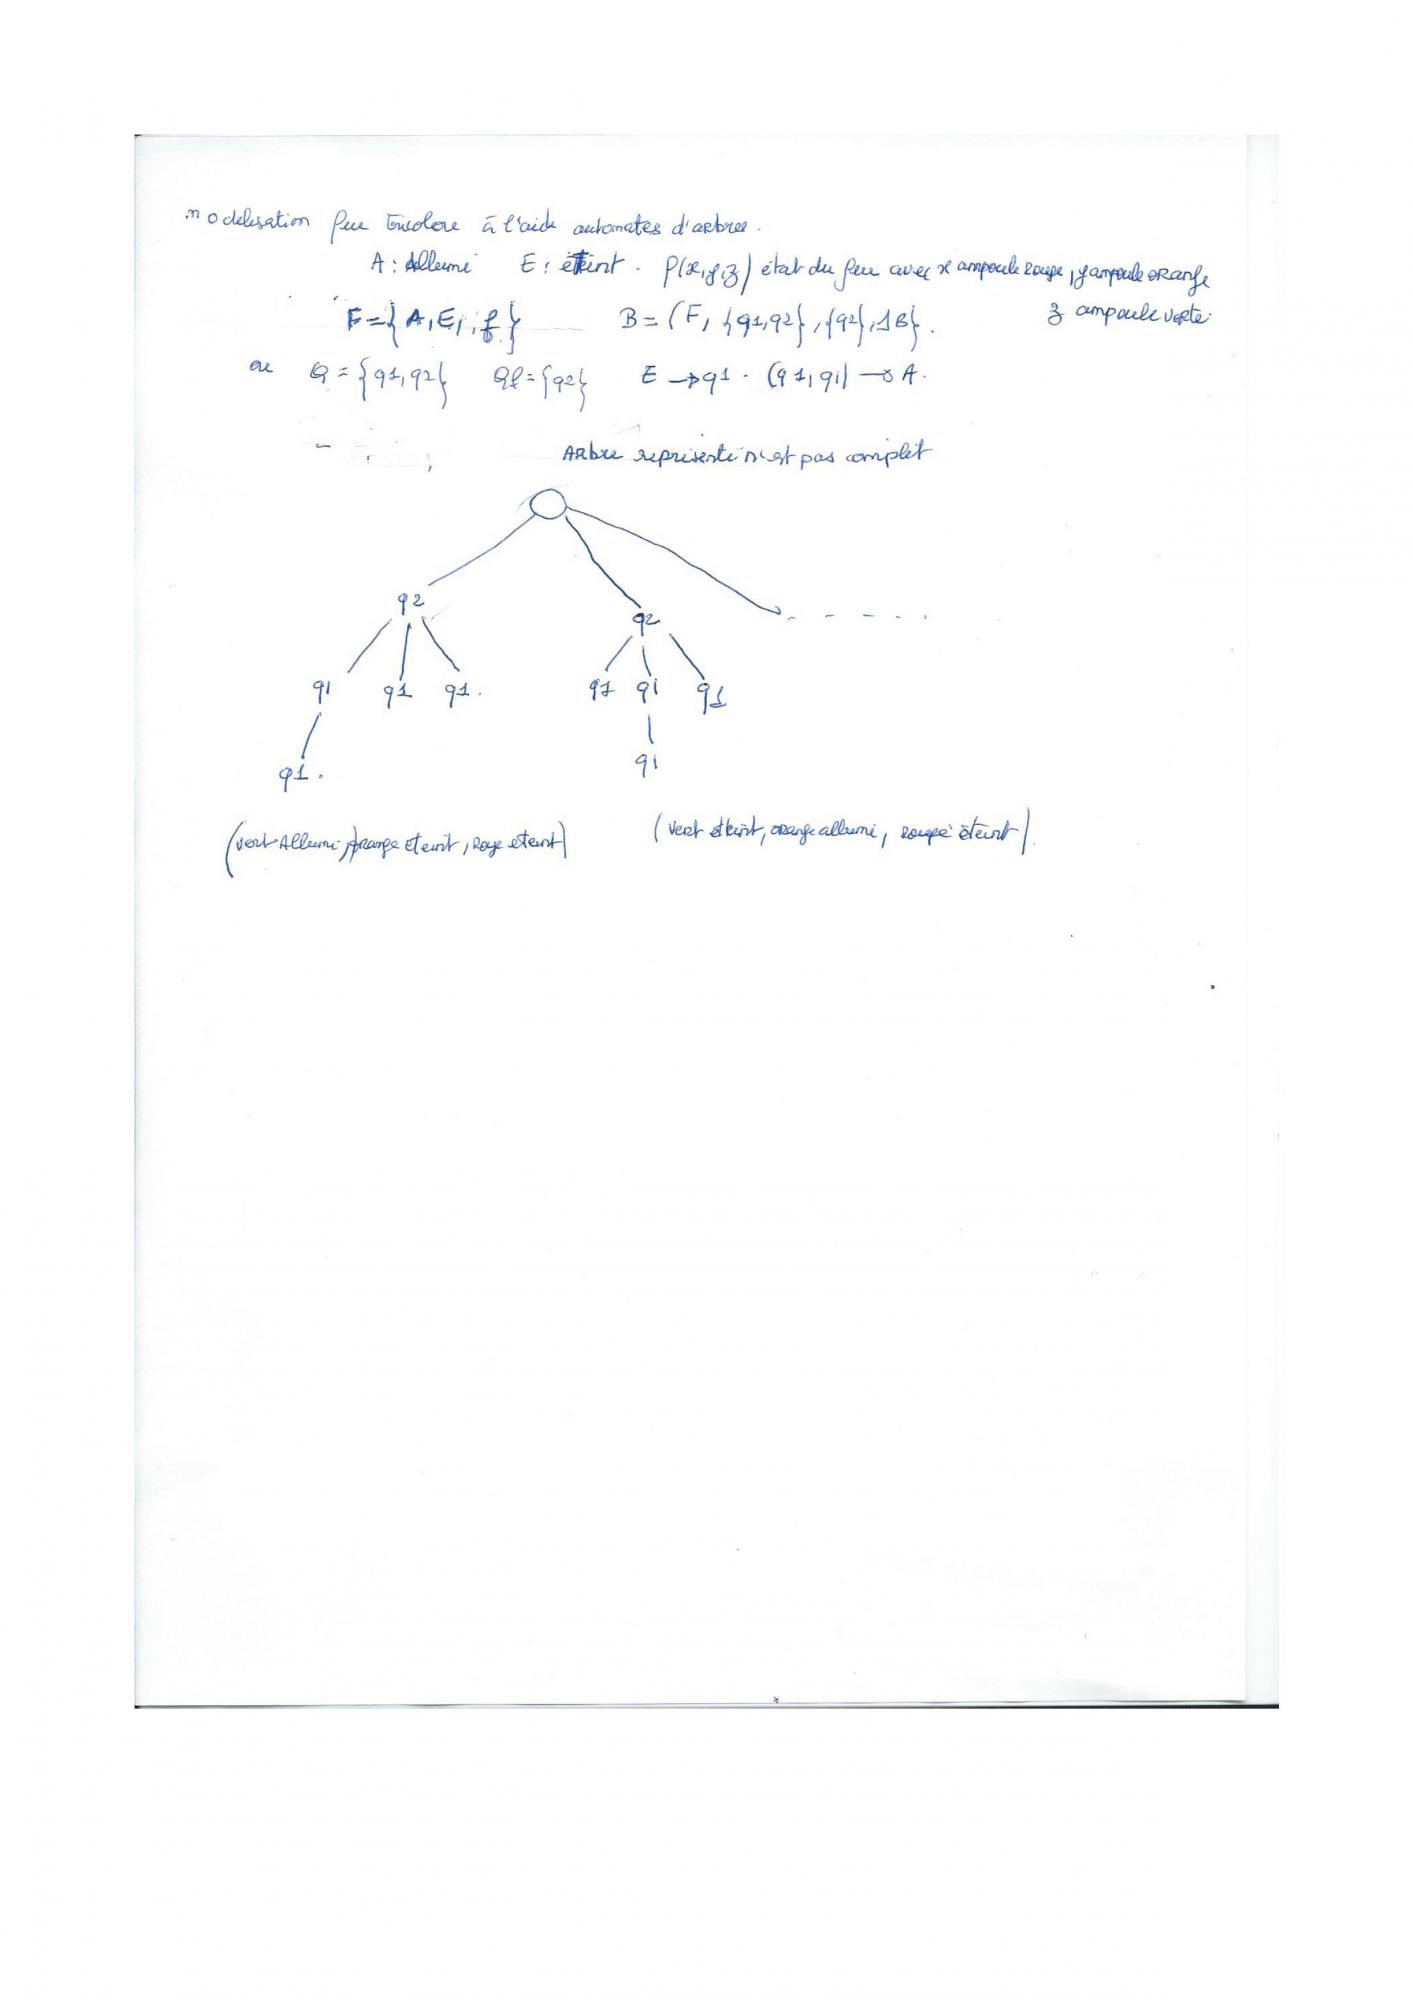 modelisation feu tricolore à l'aide automates d'arbres.
A : Allumé E : éteint . f(x,y,z) état du feu avec x ampoule rouge, y ampoule orange
z ampoule verte
F = { A, E, , f } B = (F, {q1,q2}, {q2}, ΔB} .
ou Q = {q1,q2} Qf = {q2} E → q1 . (q1,q1) → A .
Arbre représenté n'est pas complet
q2
q2 - - - - -
q1 q1 q1 . q1 q1 q1
q1 . q1
(vert Allumé, orange éteint, rouge éteint) (vert éteint, orange allumé, rouge éteint) .